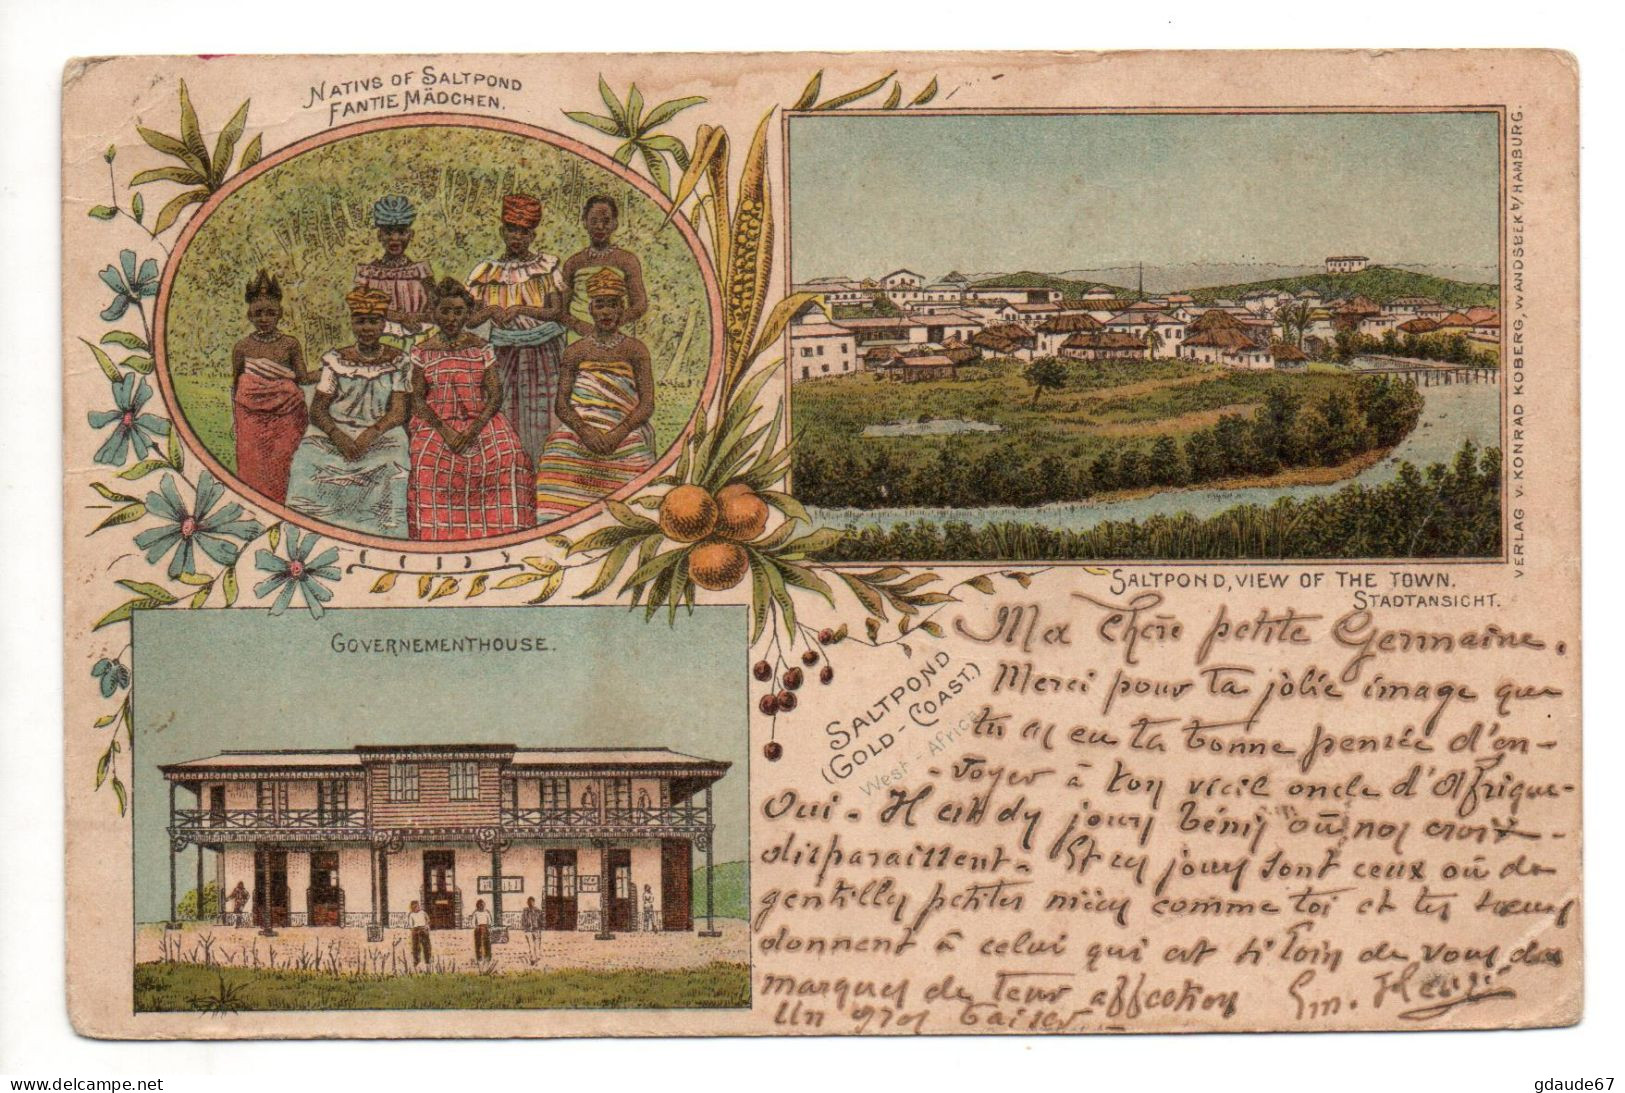 NATIVS OF SALTPOND
FANTIE MÄDCHEN.
VERLAG v. KONRAD KOBERG, WANDSBEK b/HAMBURG.
SALTPOND, VIEW OF THE TOWN.
STADTANSICHT.
GOVERNEMENTHOUSE.
SALTPOND
(GOLD-COAST.)
West-Africa
Ma Chère petite Germaine.
Merci pour ta jolie image que
tu as eu ta bonne pensée d'en-
-voyer à ton vieil oncle d'Afrique-
Oui - Il est des jours bénis où nos croix-
disparaissent - Et ces jours sont ceux où de
gentilles petites nièces comme toi et tes soeurs
donnent à celui qui est si loin de vous des
marques de leur affection
Un gros baiser.
delcampe.net
gdaude67